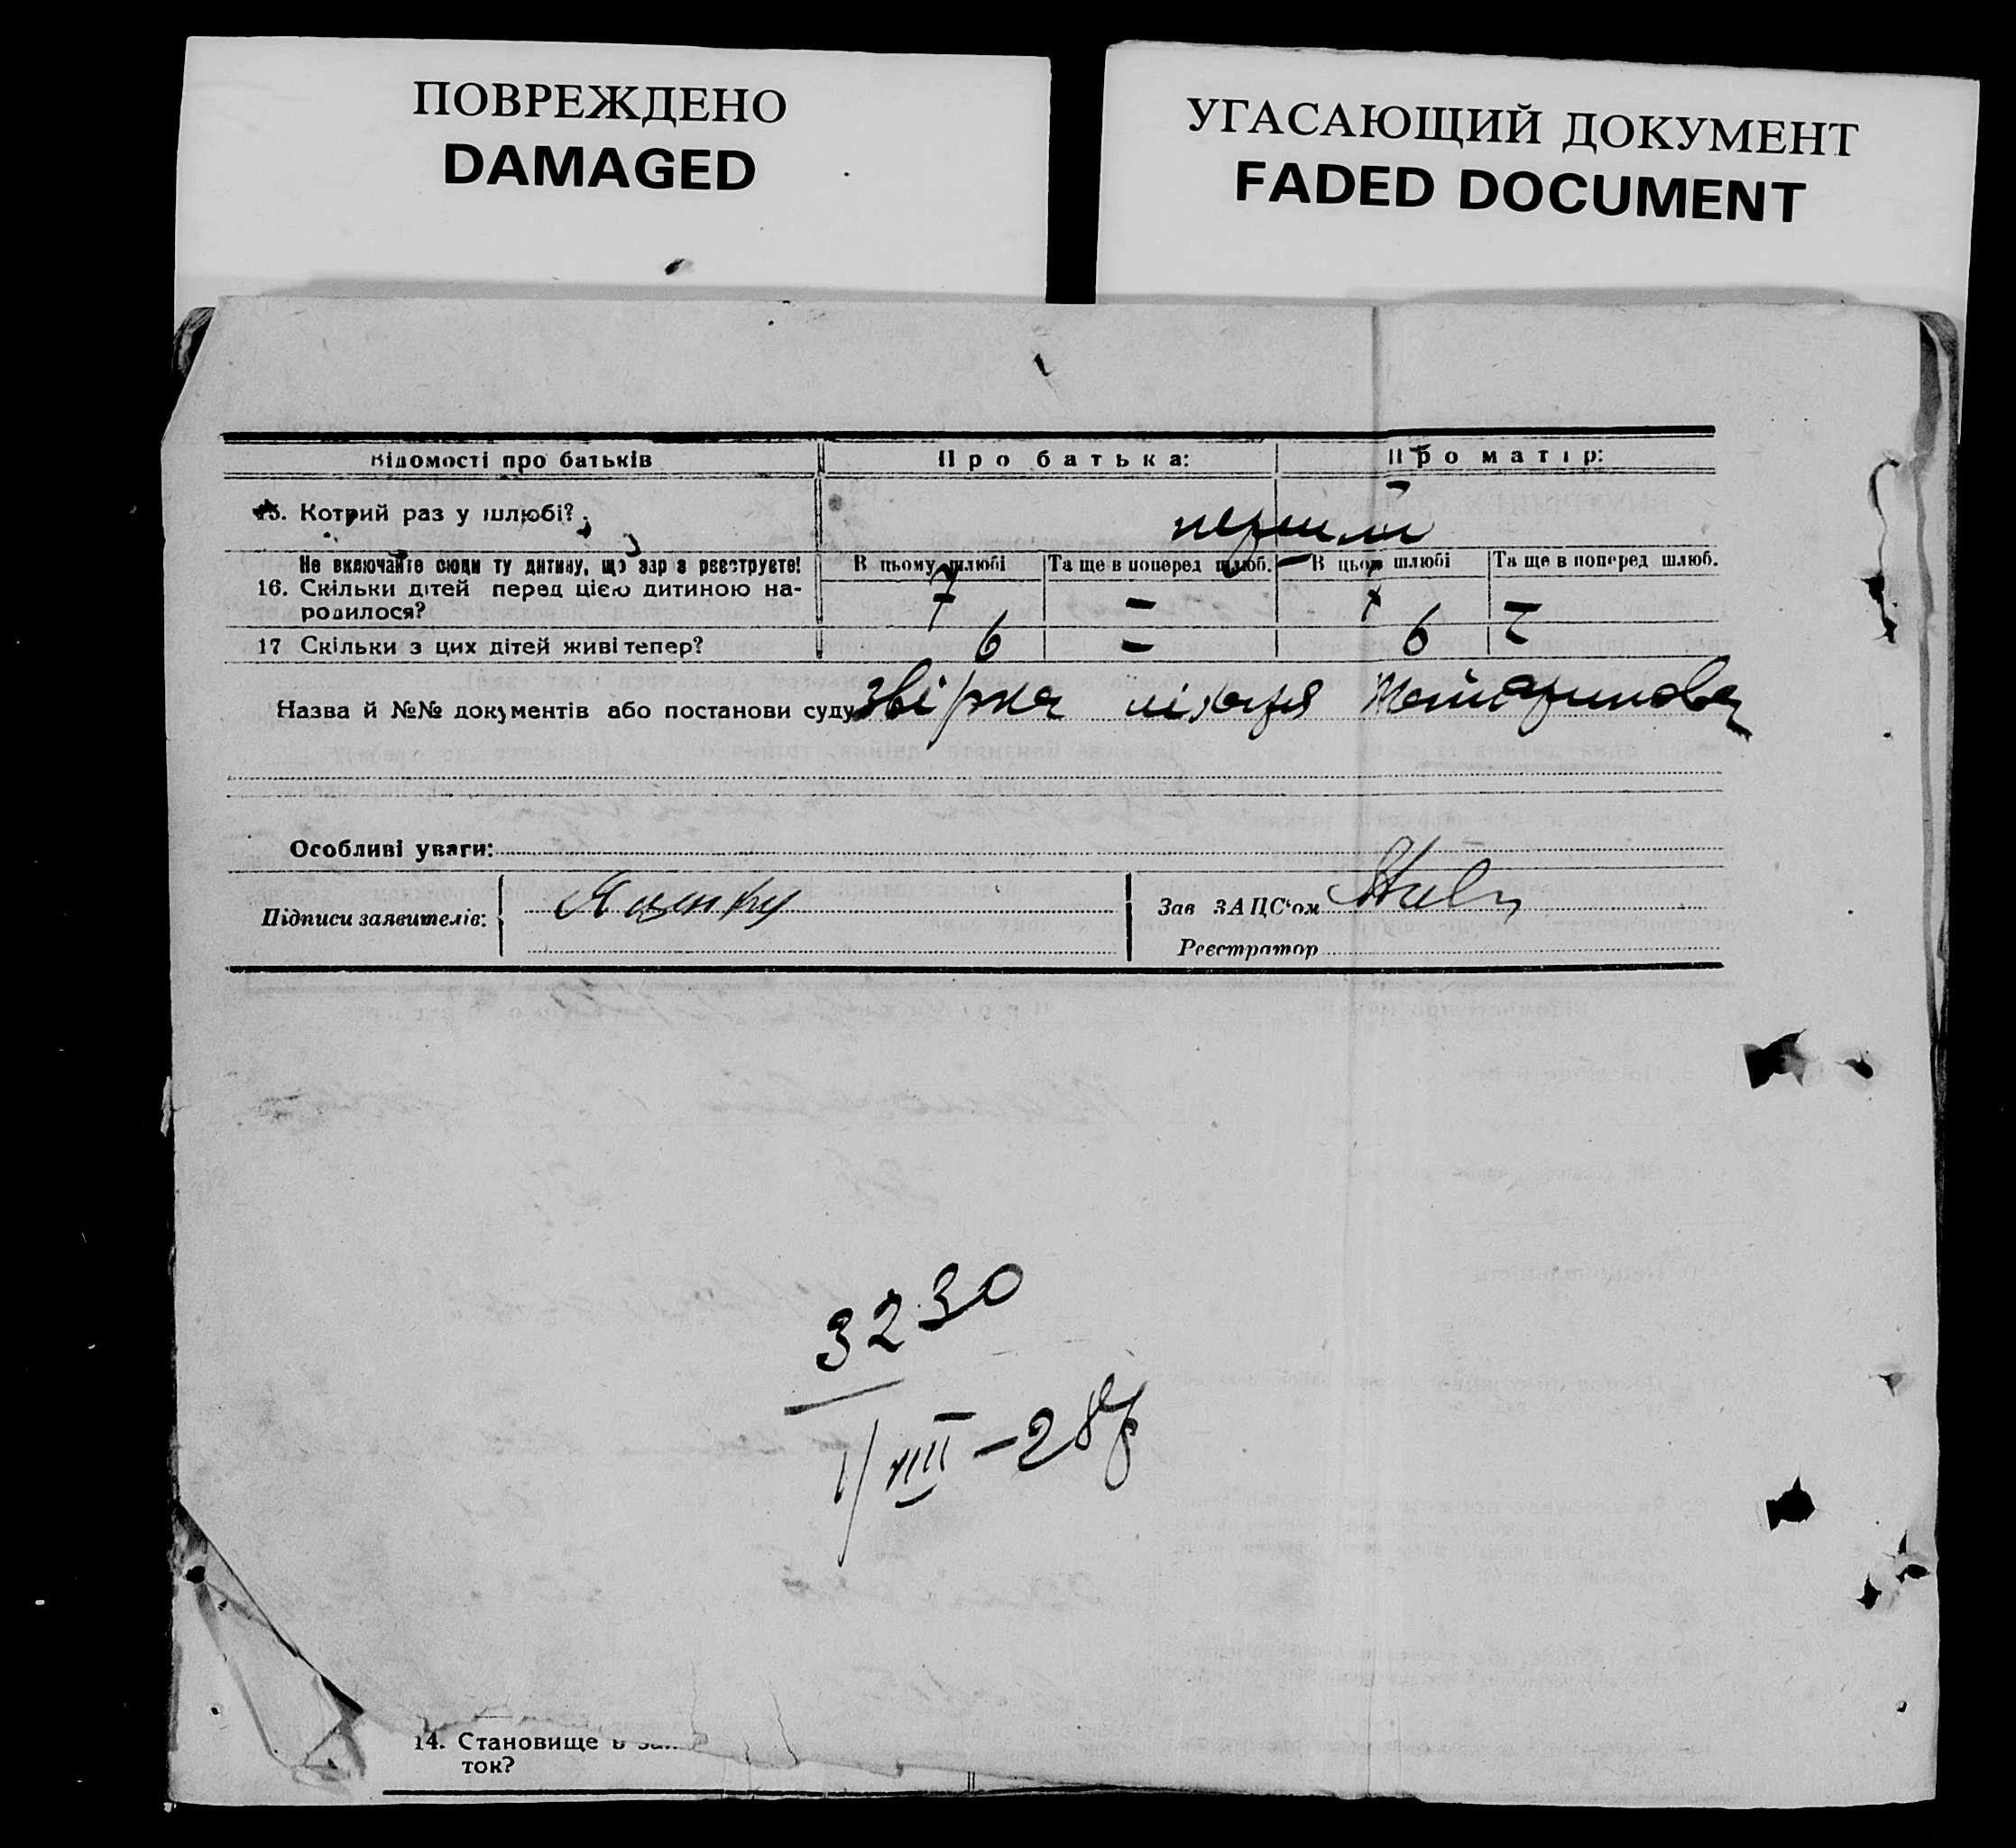 ПОВРЕЖДЕНО
DAMAGED
УГАСАЮЩИЙ ДОКУМЕНТ
FADED DOCUMENT
Відомості про батьків
Про батька:
Про матір:
15. Котрий раз у шлюбі?
перший
Не включайте сюди ту дитину, що зараз реєструєте!
В цьому шлюбі
Та ще в поперед шлюб.
В цьом шлюбі
Та ще в поперед шлюб.
16. Скільки дітей перед цією дитиною на-
родилося?
7 = 7 =
17 Скільки з цих дітей живі тепер?
6 = 6 =
Назва й №№ документів або постанови суду звірка лікаря
Особливі уваги:
Підписи заявителів:
Зав ЗАЦС'ом
Реєстратор
3230
1/VIII-28р
14. Становище в
ток?